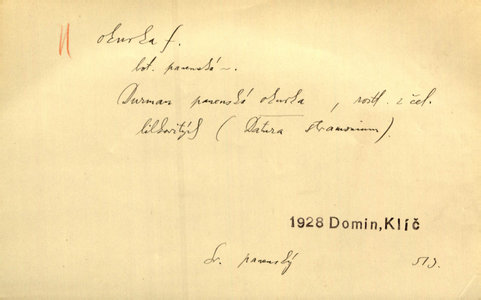 okurka f.
bot. panenská ~.
Durman panenská okurka, rostl. z čel.
lilkovitých (Datura stramonium).
1928 Domin, Klíč
Sv. panenský